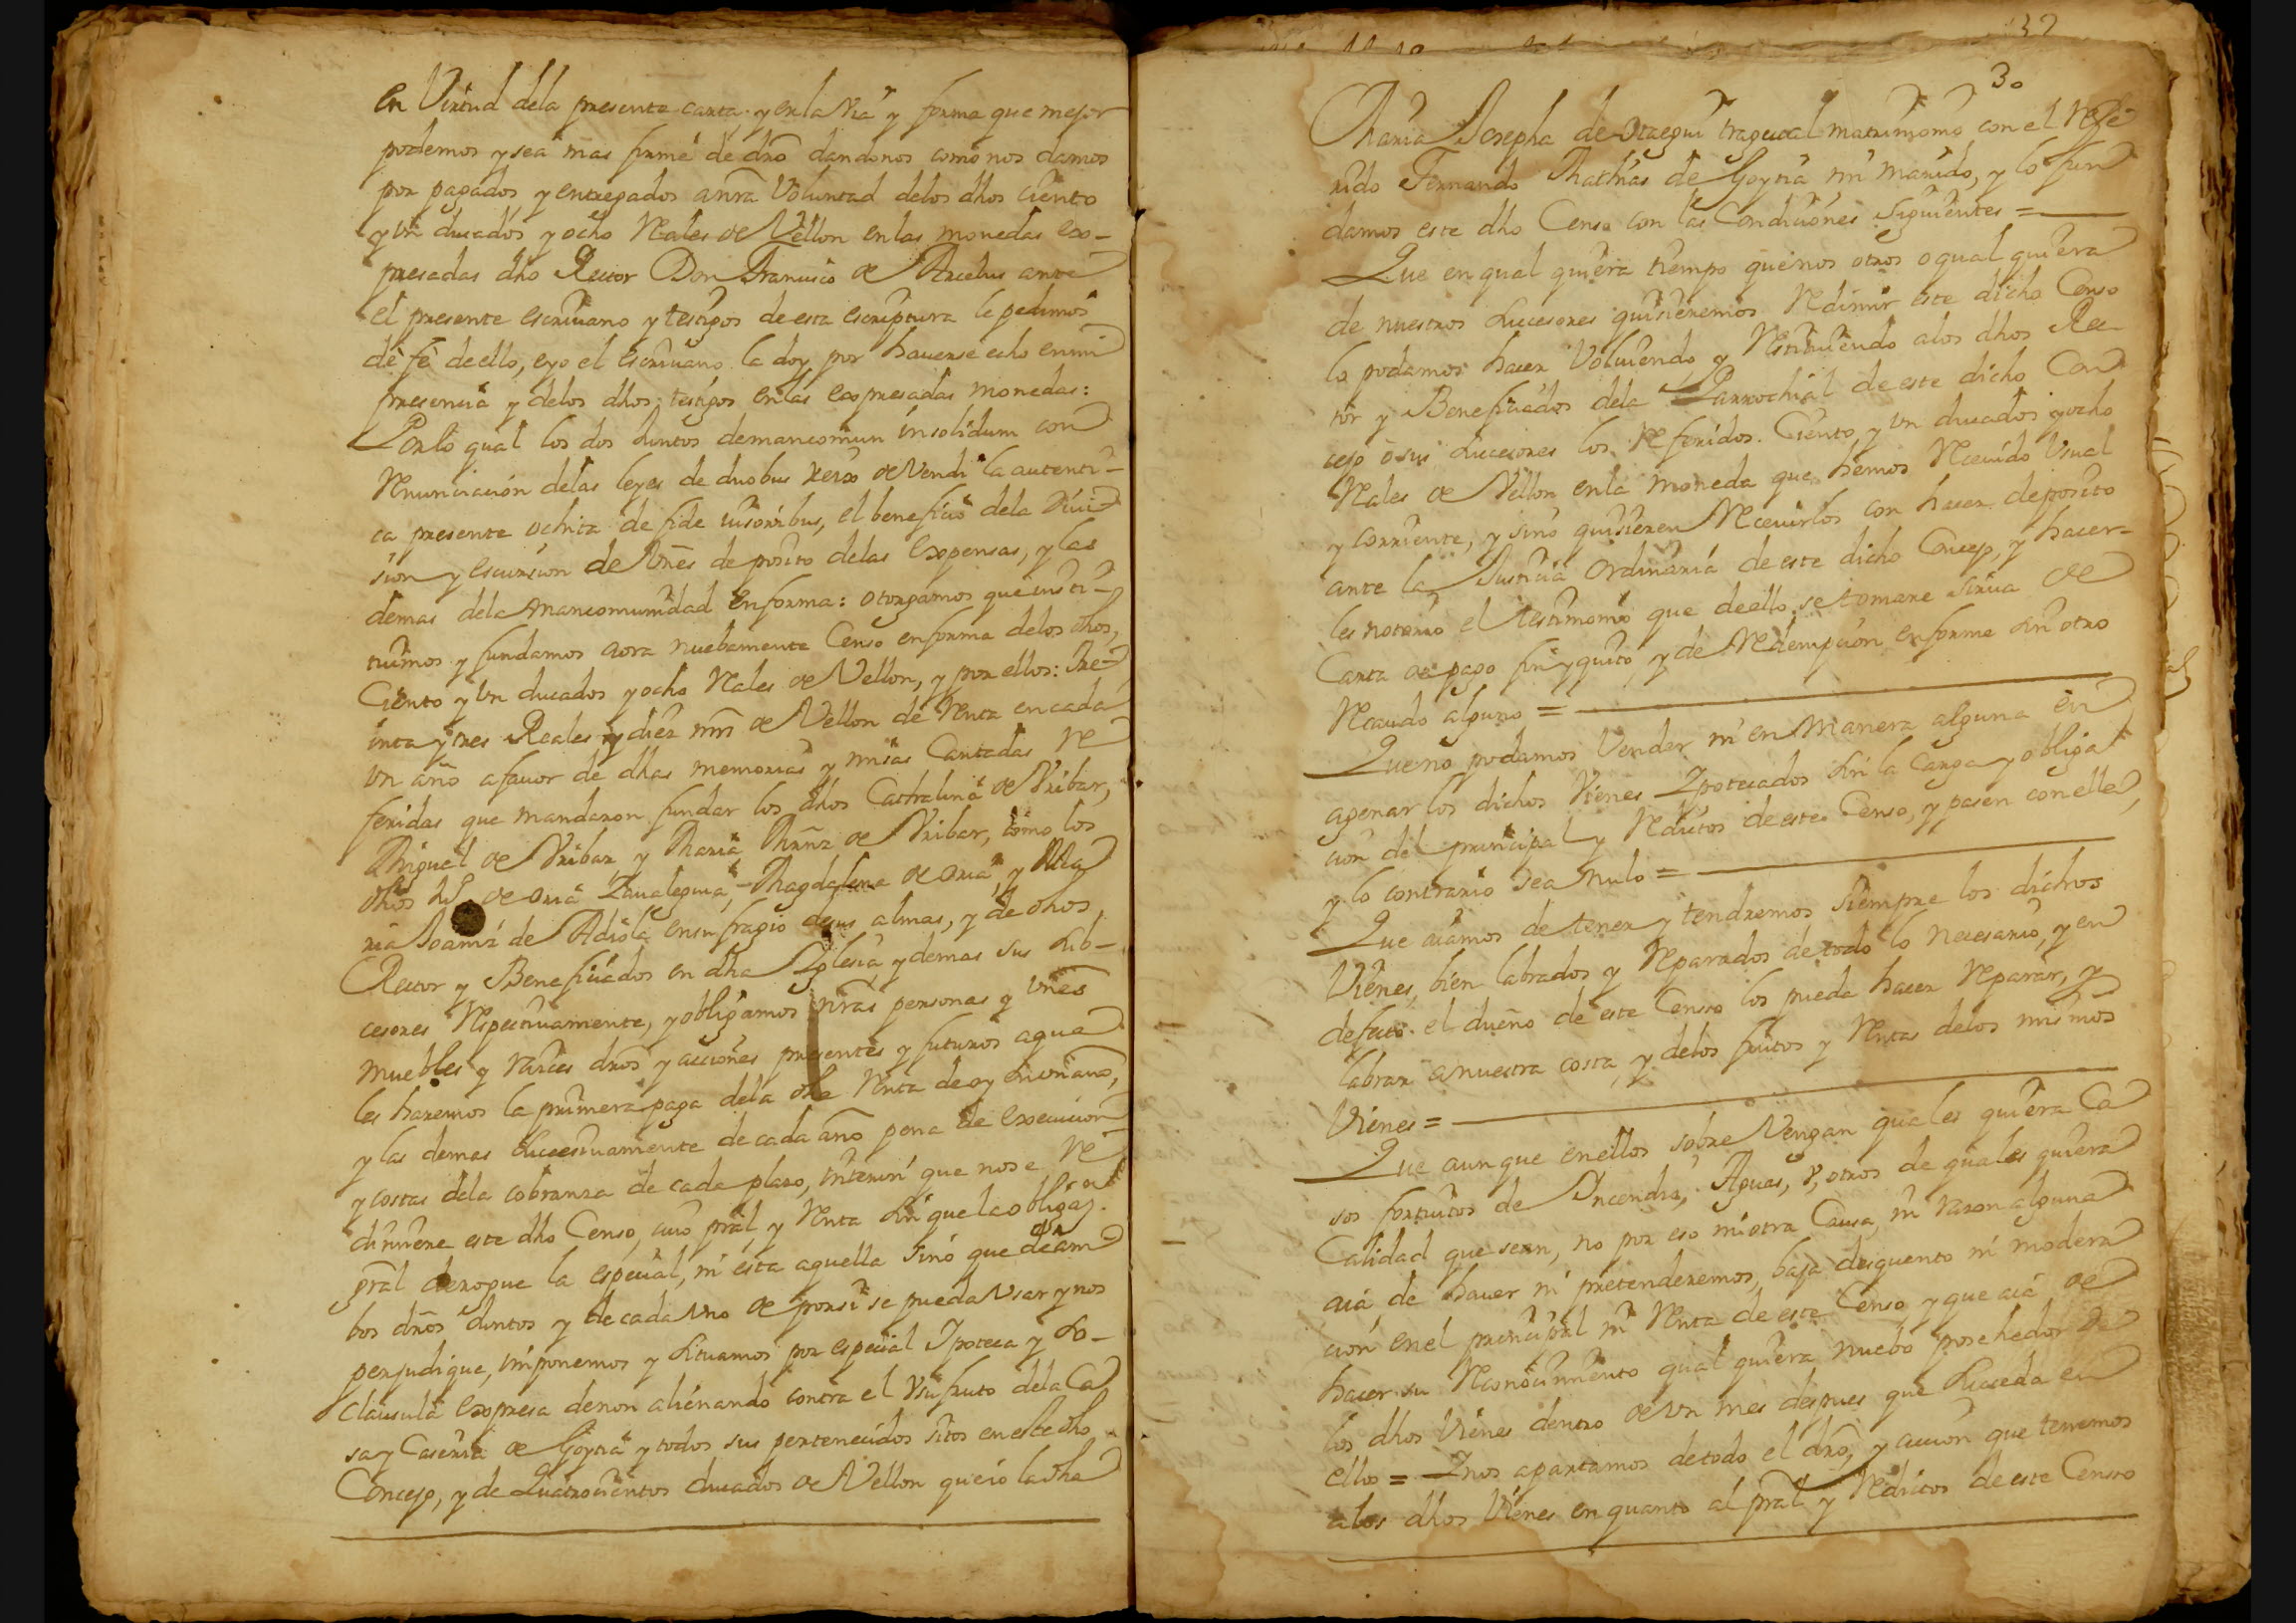 en Virtud dela presente carta y en la via y forma que mejor
podemos y sea mas firme de dro dandonos como nos damos
por pagados y entregados a nra Voluntad delos dhos ciento
y Vn ducados y ocho Reales de Vellon en las monedas ex-
presadas dho Rector Don Francisco de Arcelus ante
el presente escriuano y testigos de esta escriptura le pedimos
de fe de ello, e yo el escriuano la doy por hauerse echo en mi
presencia y delos dhos testigos en las expresadas monedas:
Por lo qual los dos Juntos de mancomun insolidum con
Renunciacion delas leyes de duobus rexs de Vendi la autenti-
ca presente ochita de fide iusoribus, el beneficio dela Diui
sion y escursion de Vnes deposito delas expensas, y las
demas dela mancomunidad en forma: otorgamos que insti-
tuimos y fundamos aora nuebamente Censo en forma delos dhos,
Ciento y Vn ducados y ocho Reales de Vellon, y por ellos: Tre-
inta y tres Reales y diez mrs de Vellon de Renta en cada
Vn año a fauor de dhas memorias y misas Cantadas re
feridas que mandaron fundar los dhos Cathalina de Vribar,
Miguel de Vribar y Maria Mrnz de Vribar, como los
dhos de Oria Zaualegui, Magdalena de Oria, y Ma
ria Joaniz de Adiola en sufragio de sus almas, y de dhos
Rector y Beneficiados en dha Iglesia y demas sus Sub-
cesores Respectiuamente, y obligamos nras personas y Vnes
muebles y raices dros y acciones presentes y futuros a que
les haremos la primera paga dela dha Renta de oy en vn año,
y las demas sucesiuamente de cada año pena de execucion
y costas dela cobranza de cada plazo, interin que no se re
dimiere este dho Censo, cuio pral, y Renta sin que la obligaon
gral derogue la especial, ni esta aquella sino que de am
bos dros Juntos y de cada Vno de por si se pueda Vsar y nos
perjudique, imponemos y situamos por especial Ipoteca y so-
clausula expresa de non alienando contra el Vsufruto dela Ca
sa y Caseria de Goytia y todos sus pertenecidos sitos en este dho
Concejo, y de Quatrocientos ducados de Vellon que io la dha
30
Maria Josepha de Otaegui traje al matrimonio con el Refe
rido Fernando Mathias de Goytia mi marido, y lo fun
damos este dho Censo con las Condiciones siguientes =
Que en qual quiera tiempo que nos otros o qual quiera
de nuestros Sucesores quisieremos Redimir este dicho Censo
lo podamos hacer Voluiendo y Restituiendo alos dhos Rec
tor y Beneficiados dela Parrochial de este dicho Con
cejo o sus Sucesores los Referidos Ciento y Vn ducados y ocho
Reales de Vellon en la moneda que hemos Receuido Vsual
y corriente, y sino quisieren Receuirlos con hacer deposito
ante la Justicia Ordinaria de este dicho Concejo, y hacer-
les notorio el testimonio que de ello se tomare sirua de
Carta de pago fin y quito, y de Redempcion en forma sin otro
Recaudo alguno =
Que no podamos Vender ni en Manera alguna en
agenar los dichos Vienes Ipotecados sin la Carga y obliga
cion del principal y Reditos de este Censo, y pasen con ella,
y lo contrario sea nulo =
Que aiamos de tener y tendremos siempre los dichos
Vienes bien labrados y Reparados de todo lo necesario, y en
defecto el dueño de este Censo los pueda hacer Reparar, y
labrar a nuestra costa, y delos frutos y Rentas delos mismos
Vienes =
Que aun que en ellos sobre Vengan quales quiera Ca
sos fortuitos de Yncendio, Aguas, y, otros de quales quiera
Calidad que sean, no por eso ni otra Causa, ni razon alguna
aia de hauer ni pretenderemos, baja desquento ni modera
cion en el principal ni Renta de este Censo y que aia de
hacer su Reconocimiento qual quiera nuebo posehedor de
los dhos Vienes dentro de Vn mes despues que suceda en
ellos = I nos apartamos de todo el dro, y accion que tenemos
a los dhos Vienes en quanto al pral y Reditos de este Censo